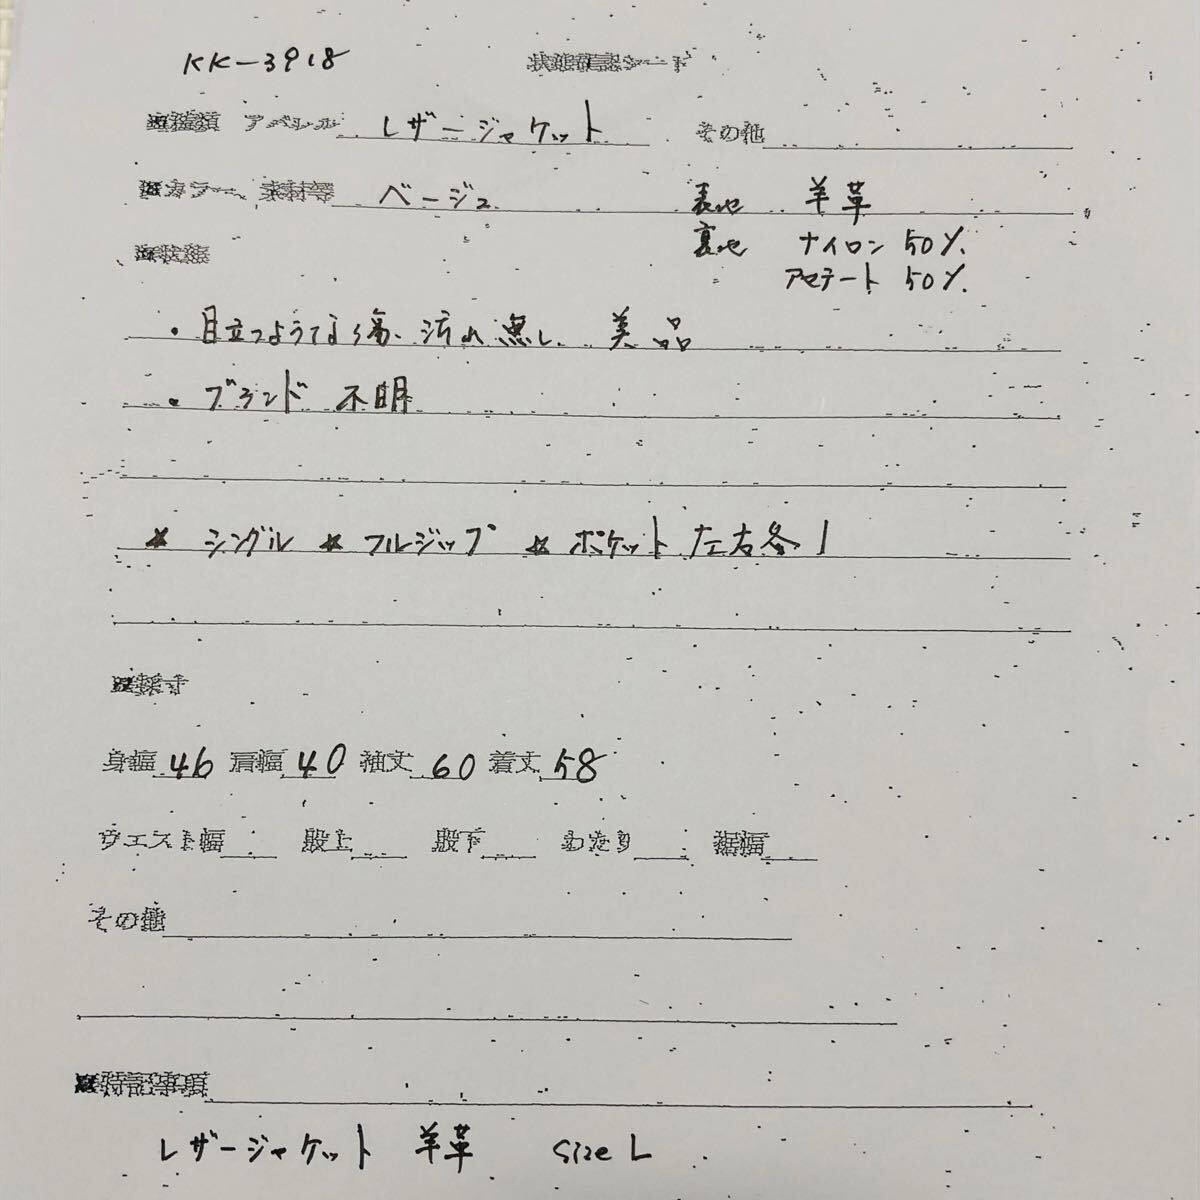 KK-3918 状態確認シート
■種類 アパレル レザージャケット その他
■カラー、素材等 ベージュ 表地 羊革
裏地 ナイロン 50%
アセテート 50%
■状態
・目立つようなキズ、汚れ無し、美品
・ブランド 不明
☆ シングル ☆ フルジップ ☆ ポケット左右各1
■採寸
身幅 46 肩幅 40 袖丈 60 着丈 58
ウエスト幅 股上 股下 わたり 裾幅
その他
■特記事項
レザージャケット 羊革 Size L